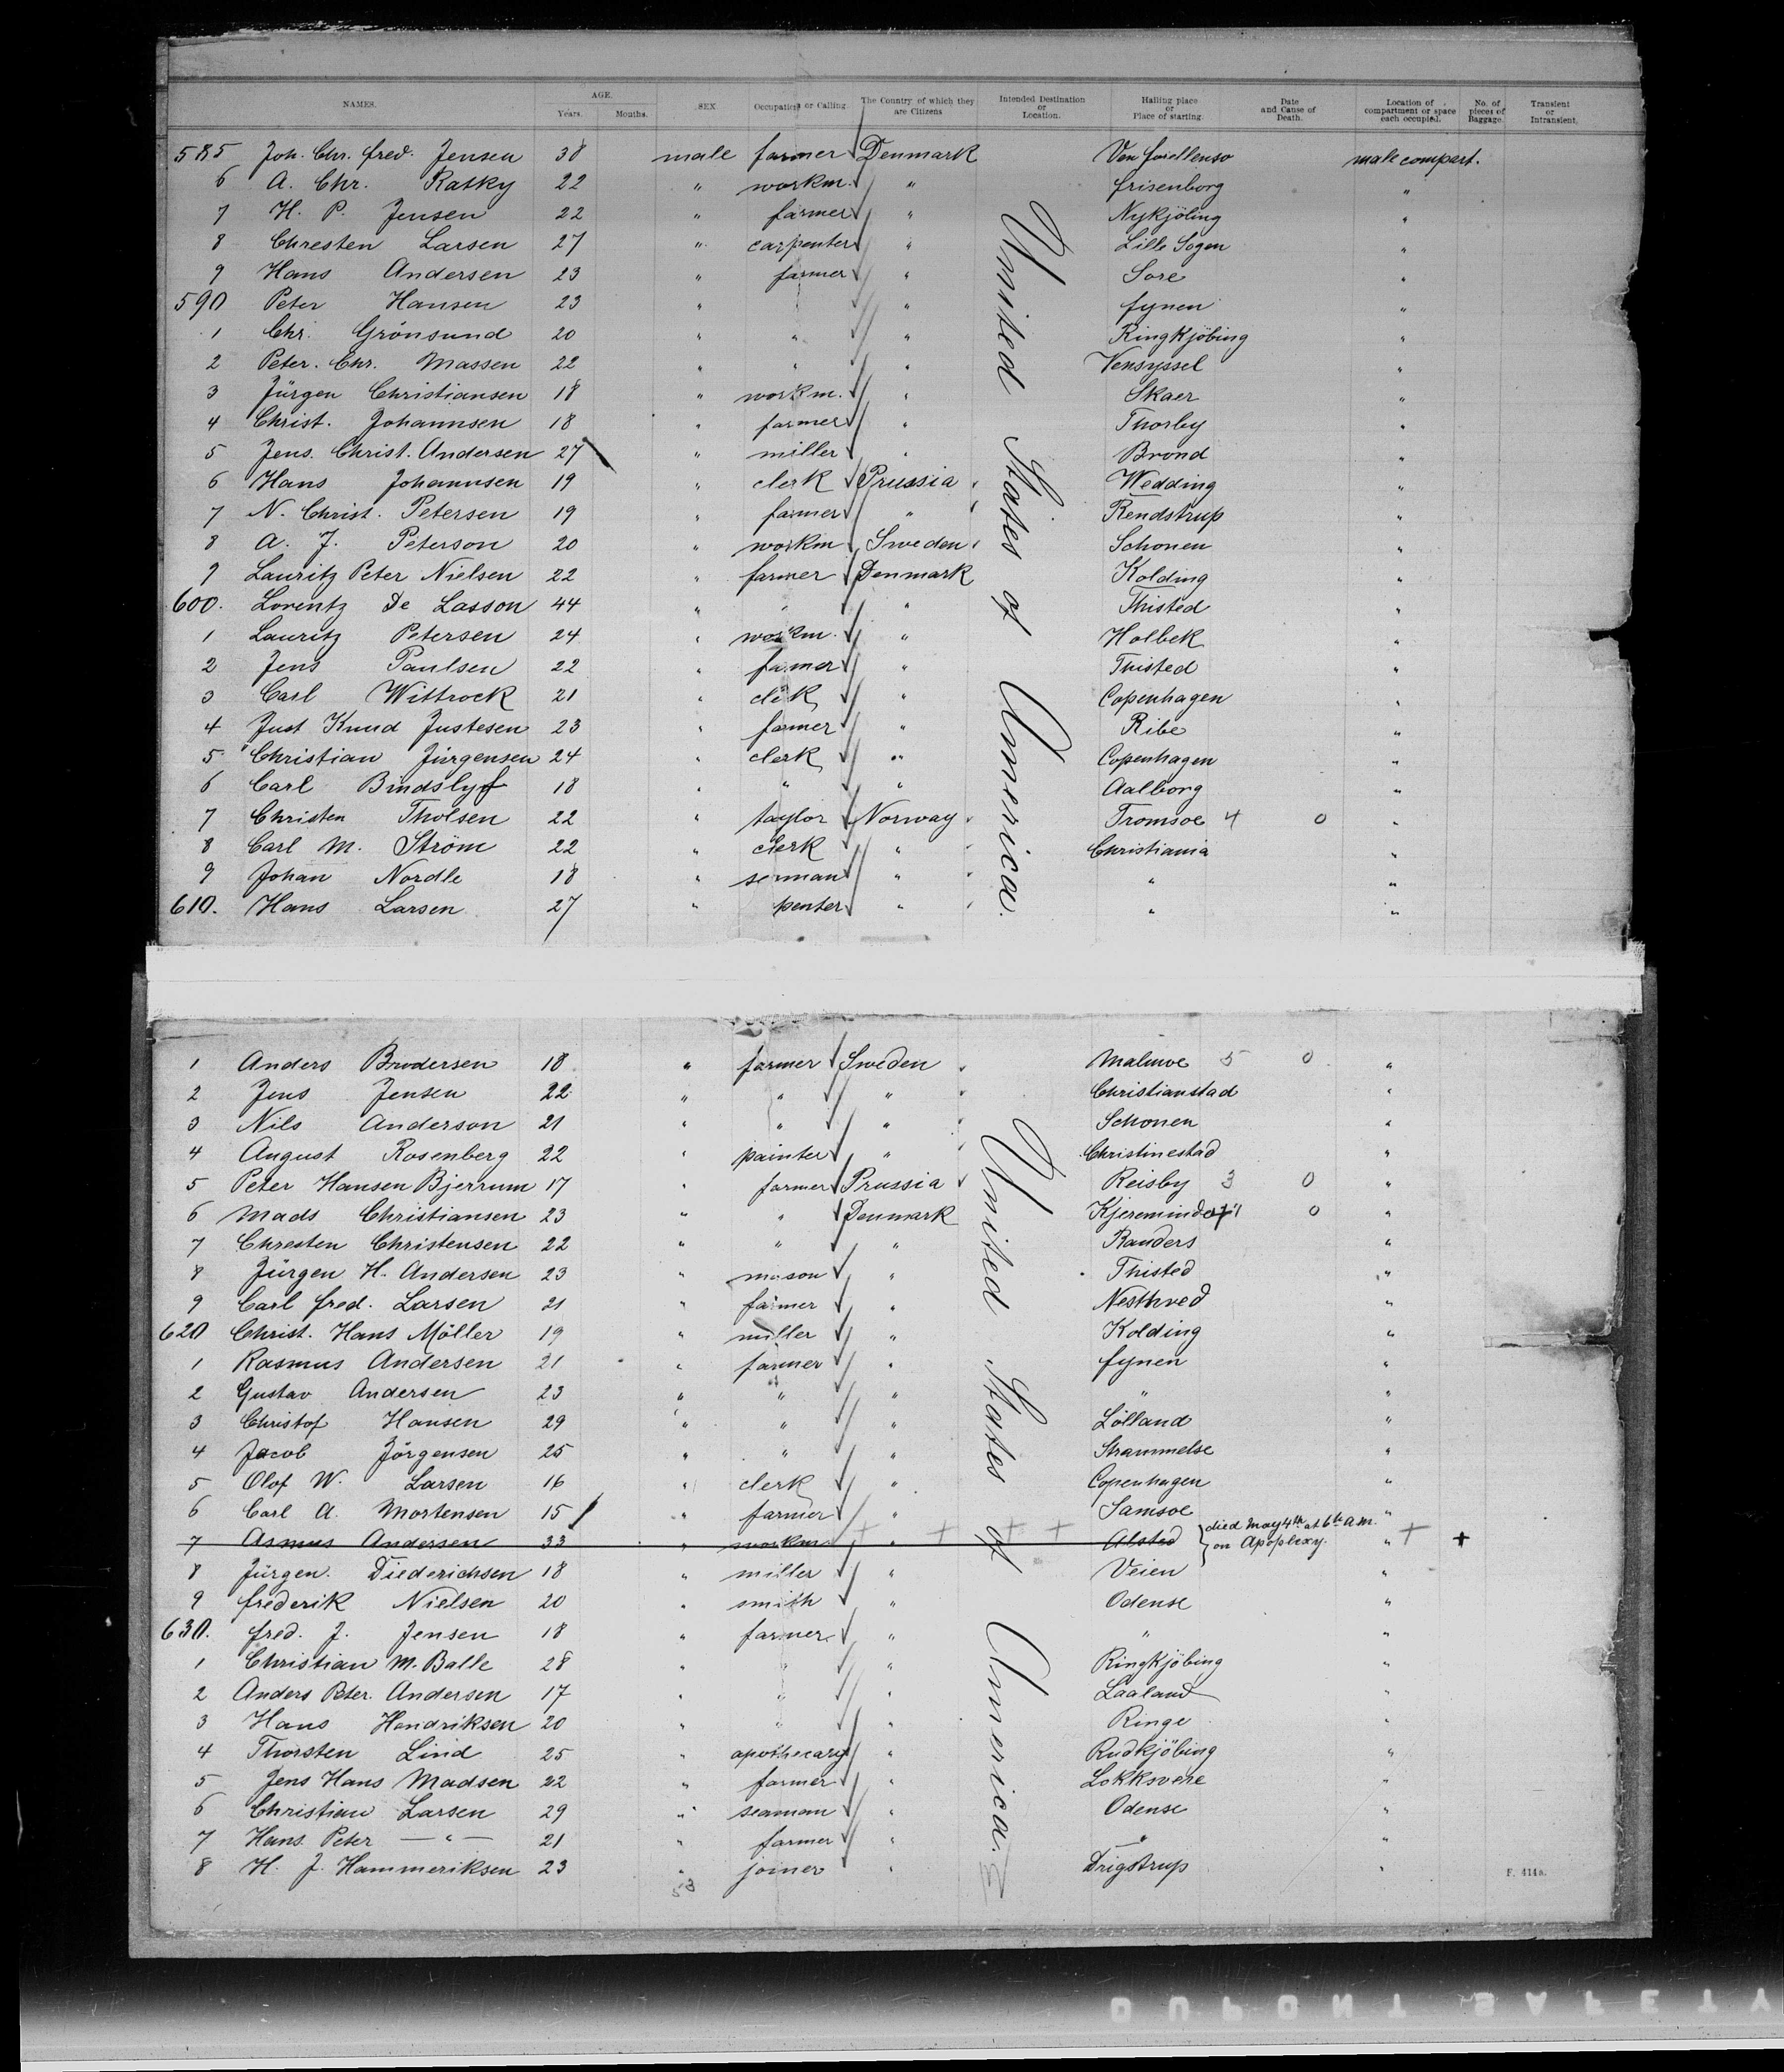 NAMES. AGE. SEX Occupation or Calling. The Country of which they are Citizens Intended Destination or Location. Hailing place or Place of starting. Date and Cause of Death. Location of compartment or space each occupied. No. of pieces of Baggage. Transient or Intransient.
Years. Months.
585 Joh. Chr. fred. Jensen 38 male farmer Denmark male compart.
6 A. Chr. Ratky 22 " workm. " frisenborg "
7 H. P. Jensen 22 " farmer " Nykjöling "
8 Chresten Larsen 27 " carpenter " Lille Sogen "
9 Hans Andersen 23 " farmer " Sore "
590 Peter Hansen 23 " " fynen "
1 Chr. Grönsund 20 " " " Ringkjöbing "
2 Peter. Chr. Massen 22 " " " Vensyssel "
3 Jürgen Christiansen 18 " workm. " Skaer "
4 Christ. Johannsen 18 " farmer " Thorby "
5 Jens. Christ. Andersen 27 " miller " Brond "
6 Hans Johannsen 19 " clerk Prussia Wedding "
7 N. Christ. Petersen 19 " farmer " Rendstrup "
8 A. J. Peterson 20 " workm Sweden Schonen "
9 Lauritz Peter Nielsen 22 " farmer Denmark Kolding "
600. Lorentz De Lasson 44 " " " Thisted "
1 Lauritz Petersen 24 " workm. " Holbek "
2 Jens Paulsen 22 " farmer " Thisted "
3 Carl Wittrock 21 " clerk " Copenhagen "
4 Just Knud Justesen 23 " farmer " Ribe "
5 Christian Jürgensen 24 " clerk " Copenhagen "
6 Carl Bindslyf 18 " " " Aalborg "
7 Christen Tholsen 22 " taylor Norway Tromsoe 4 0 "
8 Carl M. Ström 22 " clerk " Christiania "
9 Johan Nordle 18 " seaman " " "
610. Hans Larsen 27 " penter " " "
United States of America.
1 Anders Brodersen 18 " farmer Sweden Malmoe 5 0 "
2 Jens Jensen 22 " " " Christianstad "
3 Nils Anderson 21 " " " Schonen "
4 August Rosenberg 22 " painter " Christinestad "
5 Peter Hansen Bjerrum 17 " farmer Prussia Reisby 3 0 "
6 Mads Christiansen 23 " " Denmark 0 "
7 Chresten Christensen 22 " " " Randers "
8 Jürgen H. Andersen 23 " mason " Thisted "
9 Carl fred. Larsen 21 " farmer " Nesthved "
620 Christ. Hans Möller 19 " miller " Kolding "
1 Rasmus Andersen 21 " farmer " fynen "
2 Gustav Andersen 23 " " " " "
3 Christof Hansen 29 " " " Lölland "
4 Jacob Jörgensen 25 " " " Strammelse "
5 Olof W. Larsen 16 " clerk " Copenhagen "
6 Carl A. Mortensen 15 " farmer " Samsoe "
7 Asmus Andersen 33 " workm " Alsted died May 4th at 6th A.M. on Apoplexy. "
8 Jürgen. Diederichsen 18 " miller " Veien "
9 frederik Nielsen 20 " smith " Odense "
630. fred. J. Jensen 18 " farmer " " "
1 Christian M. Balle 28 " " " Ringkjöbing "
2 Anders Peter. Andersen 17 " " " Laaland "
3 Hans Hendriksen 20 " " " Ringe "
4 Thorsten Lind 25 " apothecary " Rudkjöbing "
5 Jens Hans Madsen 22 " farmer " "
6 Christian Larsen 29 " seaman " Odense "
7 Hans Peter — " — 21 " farmer " " "
8 H. J. Hammeriksen 23 " joiner " Drigstrup "
United States of America.
53
F. 414a.
DUPONT SAFETY